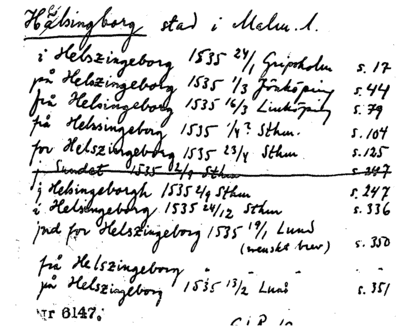 Hälsingborg stad i Malm. l.
i Helszingeborg 1535 24/1 Gripsholm s. 17
på Helszingeborg 1535 1/3 Jönköping s. 44
frå Helsingeborg 1535 16/3 Linköping s. 79
på Helssingeborg 1535 1/4? Sthm. s. 104
for Helszingeborg 1535 23/4 Sthm. s. 125
i Sundet 1535 2/9 Sthm s. 247
i Helsingeborgh 1535 2/9 Sthm s. 247
i Helszingeborg 1535 24/12 Sthm s. 336
ind for Helszingeborg 1535 14/1 Lund
(svenskt brev) s. 350
frå Helszingeborg
på Helszingeborg 1535 13/2 Lund s. 351
Nr 6147.
G I R 10